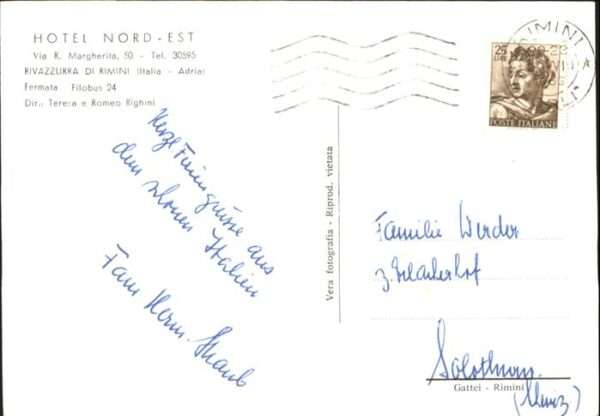 HOTEL NORD-EST
Via R. Margherita, 50 - Tel. 30595
RIVAZZURRA DI RIMINI (Italia - Adria)
Fermata Filobus 24
Dir.: Teresa e Romeo Righini
Herzl Feriengrüsse aus
dem schönen Italien
Fam Herm. Straub
Vera fotografia - Riprod. vietata
RIMINI
25
LIRE
POSTE ITALIANE
Familie Werder
Solothurn
Gattei - Rimini
(Schweiz)